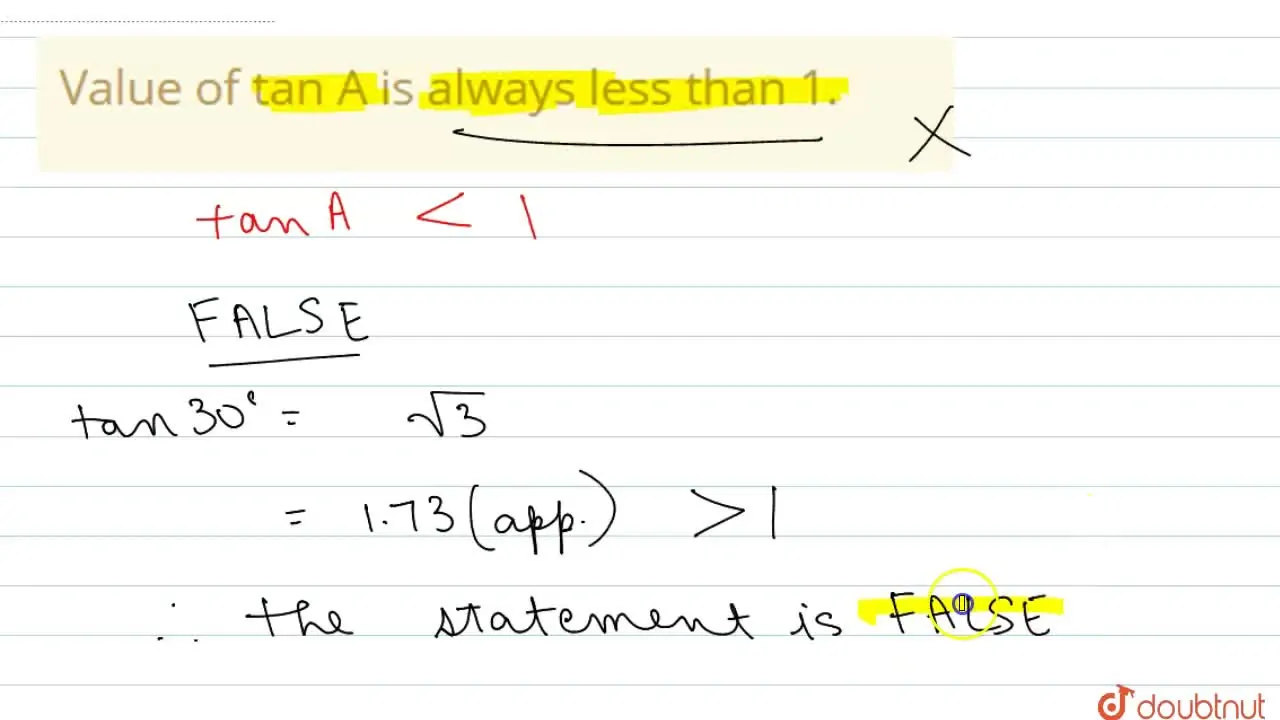 Value of tan A is always less than 1.
tan A < 1
FALSE
tan 30° = √3
= 1.73 (app.) > 1
∴ the statement is FALSE
doubtnut